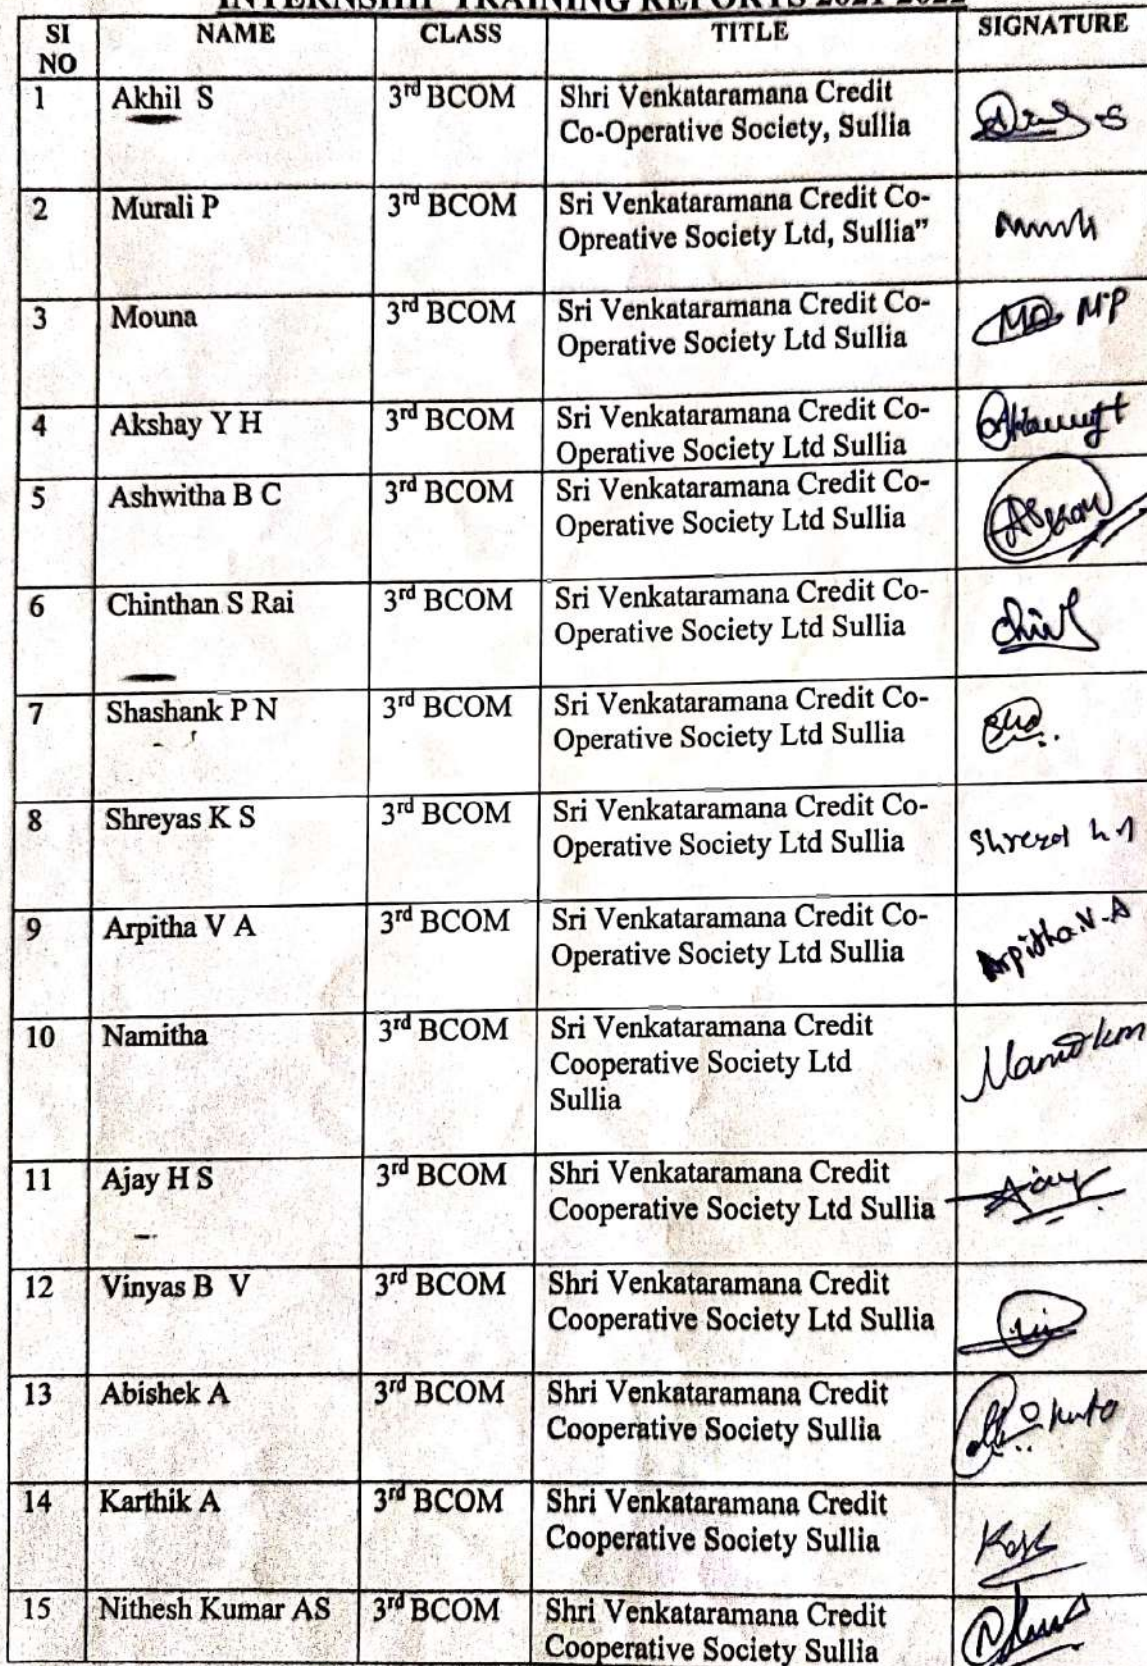 INTERNSHIP TRAINING REPORTS 2021-2022
SI NO NAME CLASS TITLE SIGNATURE
1 Akhil S 3rd BCOM Shri Venkataramana Credit
Co-Operative Society, Sullia
2 Murali P 3rd BCOM Sri Venkataramana Credit Co-
Opreative Society Ltd, Sullia”
3 Mouna 3rd BCOM Sri Venkataramana Credit Co-
Operative Society Ltd Sullia
4 Akshay Y H 3rd BCOM Sri Venkataramana Credit Co-
Operative Society Ltd Sullia
5 Ashwitha B C 3rd BCOM Sri Venkataramana Credit Co-
Operative Society Ltd Sullia
6 Chinthan S Rai 3rd BCOM Sri Venkataramana Credit Co-
Operative Society Ltd Sullia
7 Shashank P N 3rd BCOM Sri Venkataramana Credit Co-
Operative Society Ltd Sullia
8 Shreyas K S 3rd BCOM Sri Venkataramana Credit Co-
Operative Society Ltd Sullia
9 Arpitha V A 3rd BCOM Sri Venkataramana Credit Co-
Operative Society Ltd Sullia Arpitha.V.A
10 Namitha 3rd BCOM Sri Venkataramana Credit
Cooperative Society Ltd
Sullia
11 Ajay H S 3rd BCOM Shri Venkataramana Credit
Cooperative Society Ltd Sullia Ajay
12 Vinyas B V 3rd BCOM Shri Venkataramana Credit
Cooperative Society Ltd Sullia
13 Abishek A 3rd BCOM Shri Venkataramana Credit
Cooperative Society Sullia
14 Karthik A 3rd BCOM Shri Venkataramana Credit
Cooperative Society Sullia
15 Nithesh Kumar AS 3rd BCOM Shri Venkataramana Credit
Cooperative Society Sullia